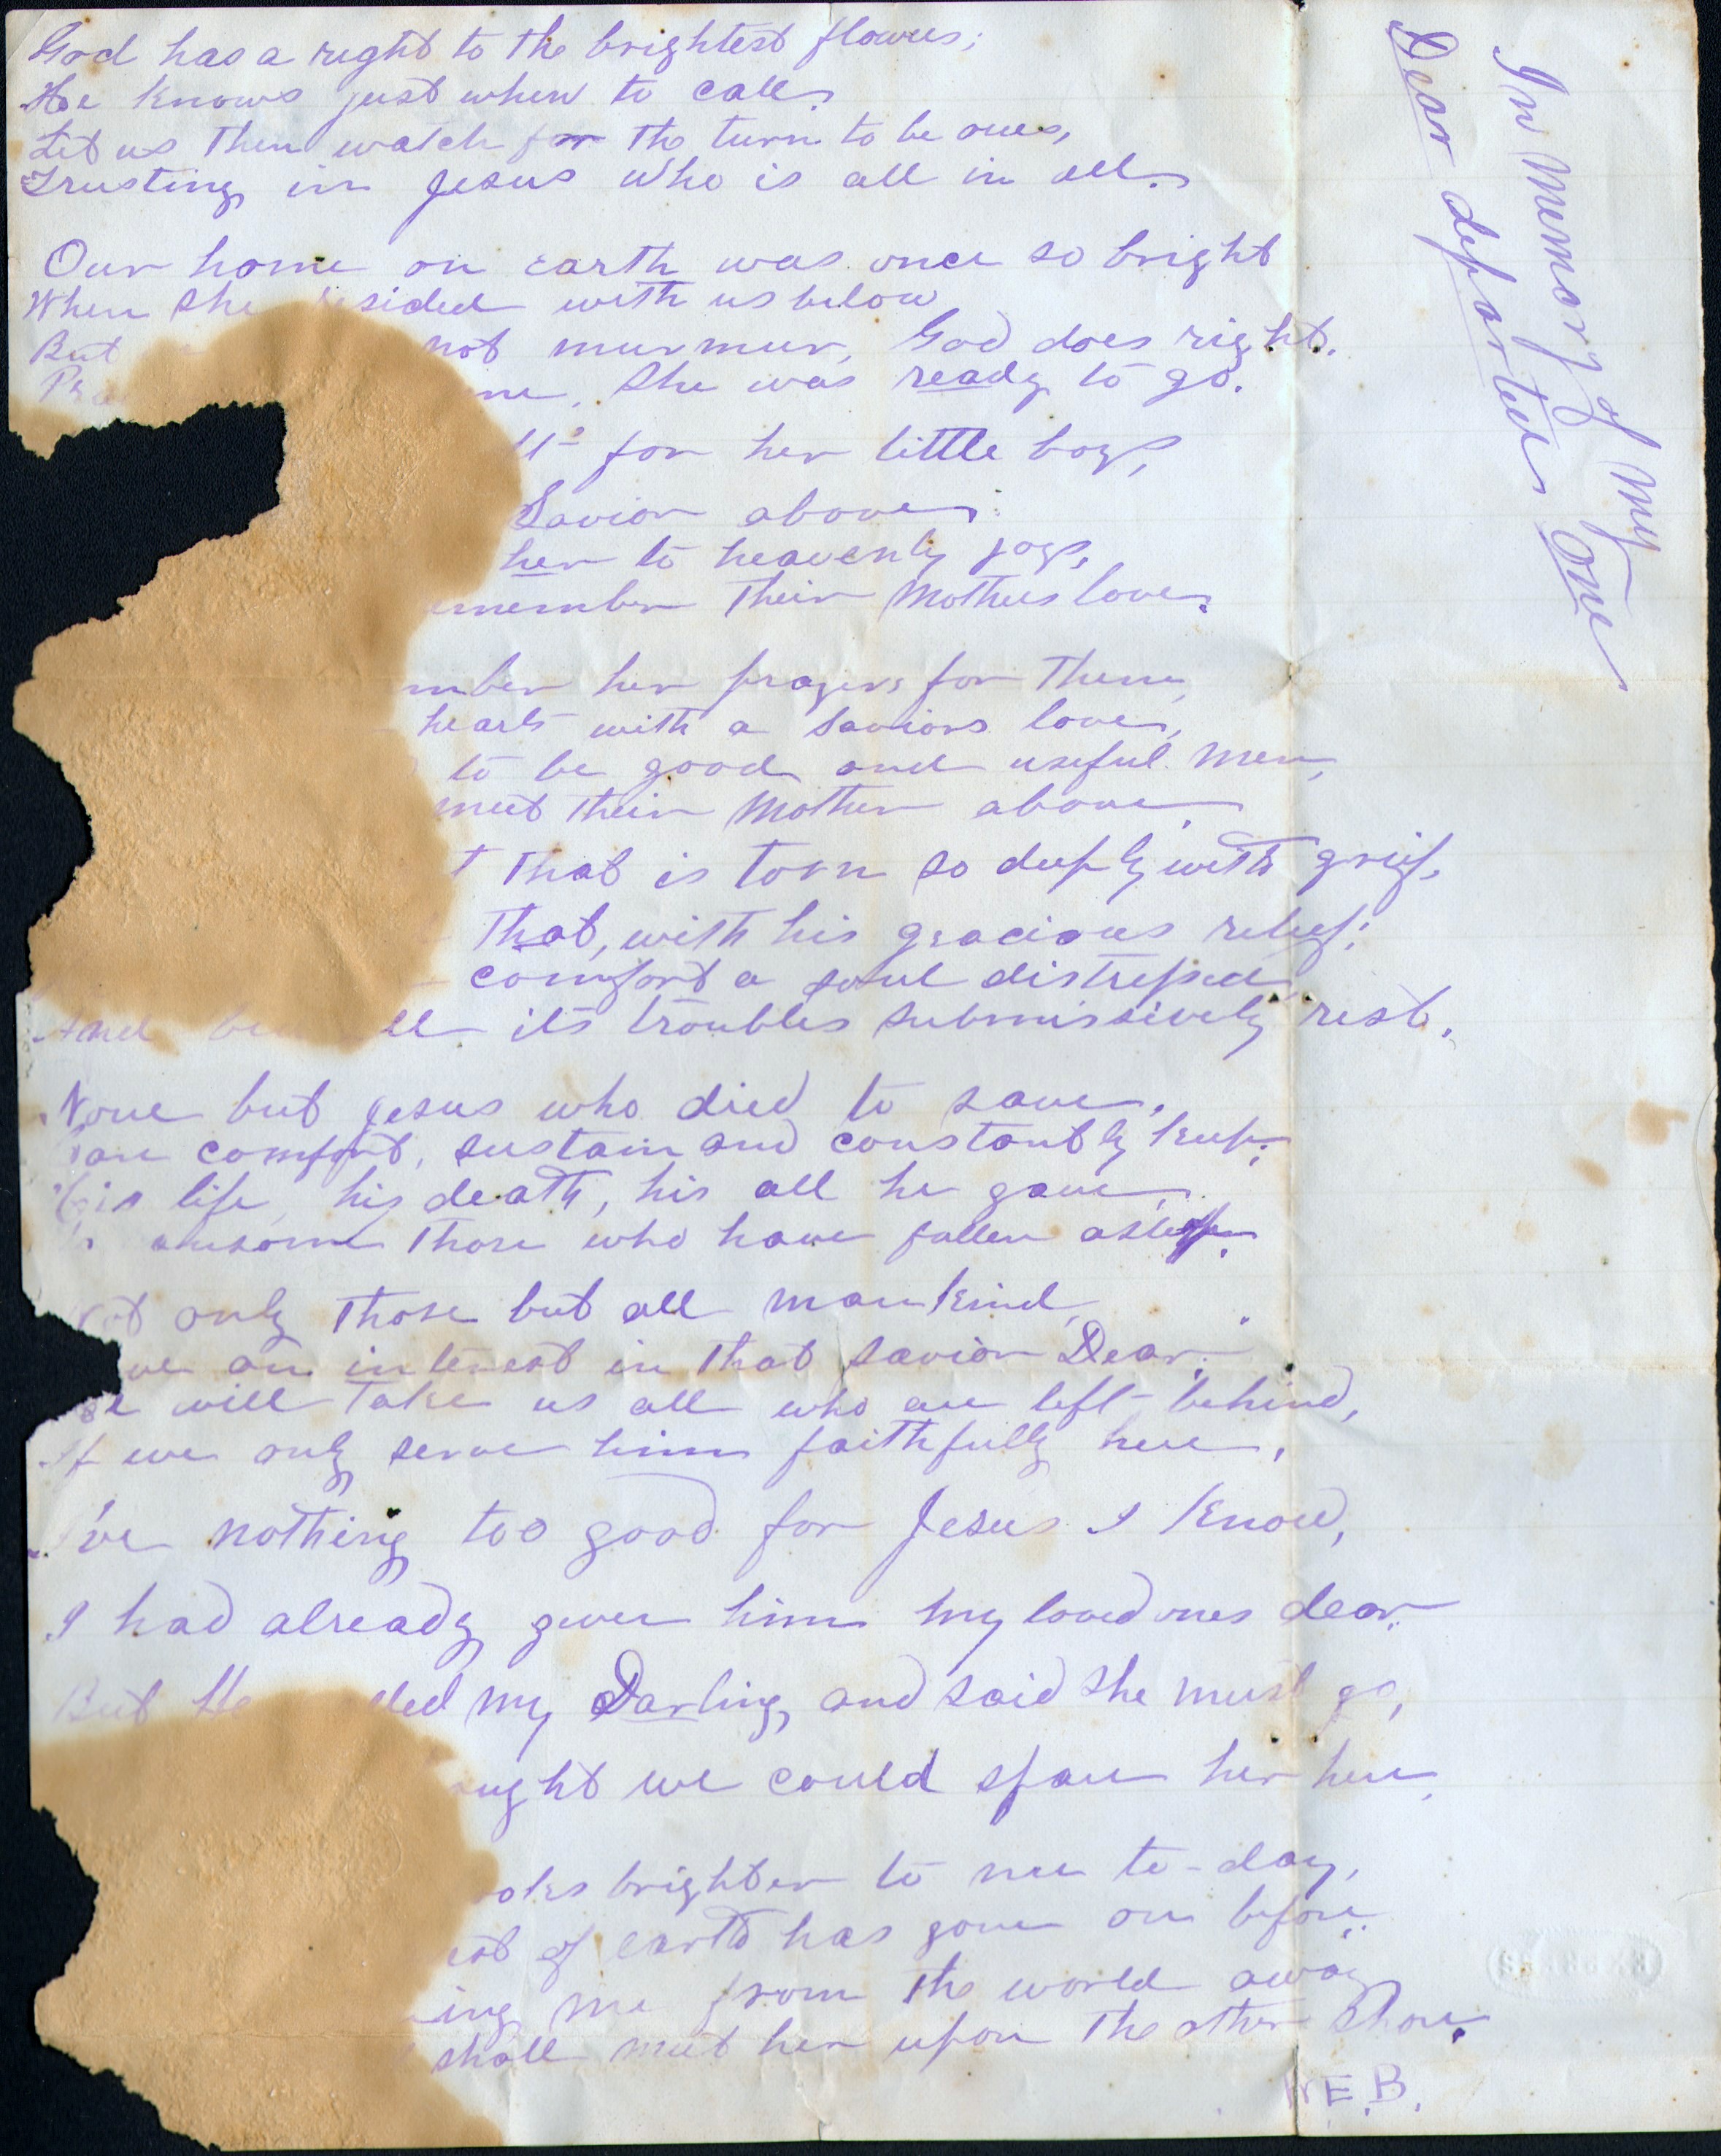 God has a right to the brightest flowers;
He knows just when to call.
Let us then watch for the turn to be ours,
Trusting in Jesus who is all in all.
Our home on earth was once so bright
When she resided with us below
But not murmur, God does right.
she was ready to go.
for her little boys,
Savior above
her to heavenly joys,
remember their Mothers love.
her prayers for them,
hearts with a Saviors love,
to be good and useful men,
meet their Mother above.
that is torn so deeply with grief,
that, with his gracious relief;
comfort a soul distressed
And its troubles submissively rest.
None but Jesus who died to save,
Can comfort, sustain and constantly keep;
His life, his death, his all he gave,
ransome those who have fallen asleep.
Not only those but all mankind,
an interest in that Savior Dear.
He will take us all who are left behind,
If we only serve him faithfully here,
I've nothing too good for Jesus I know,
I had already given him my loved ones dear.
But He my Darling, and said she must go,
we could spare her here,
brighter to me to-day,
of earth has gone on before.
me from the world away
shall meet her upon the other Shore.
W.E.B.
In Memory of My
Dear departed One
EXPRESS